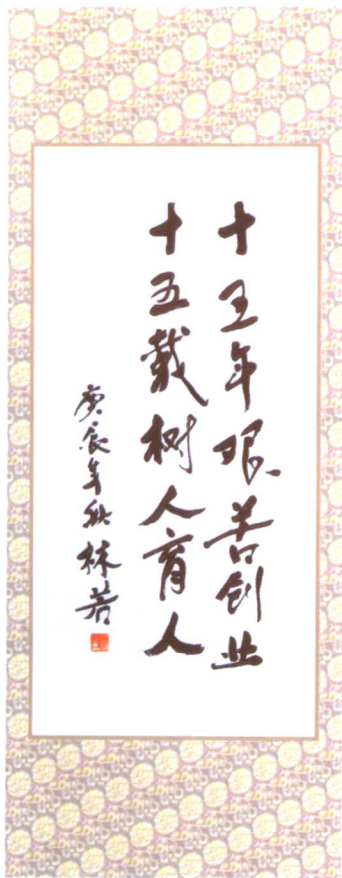 十五年艰苦创业
十五载树人育人
庚辰年秋 林若